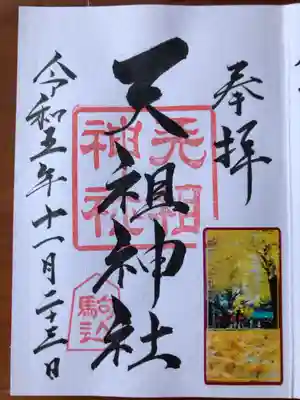 奉拝
天祖神社
天祖神社
駒込
令和五年十一月二十三日